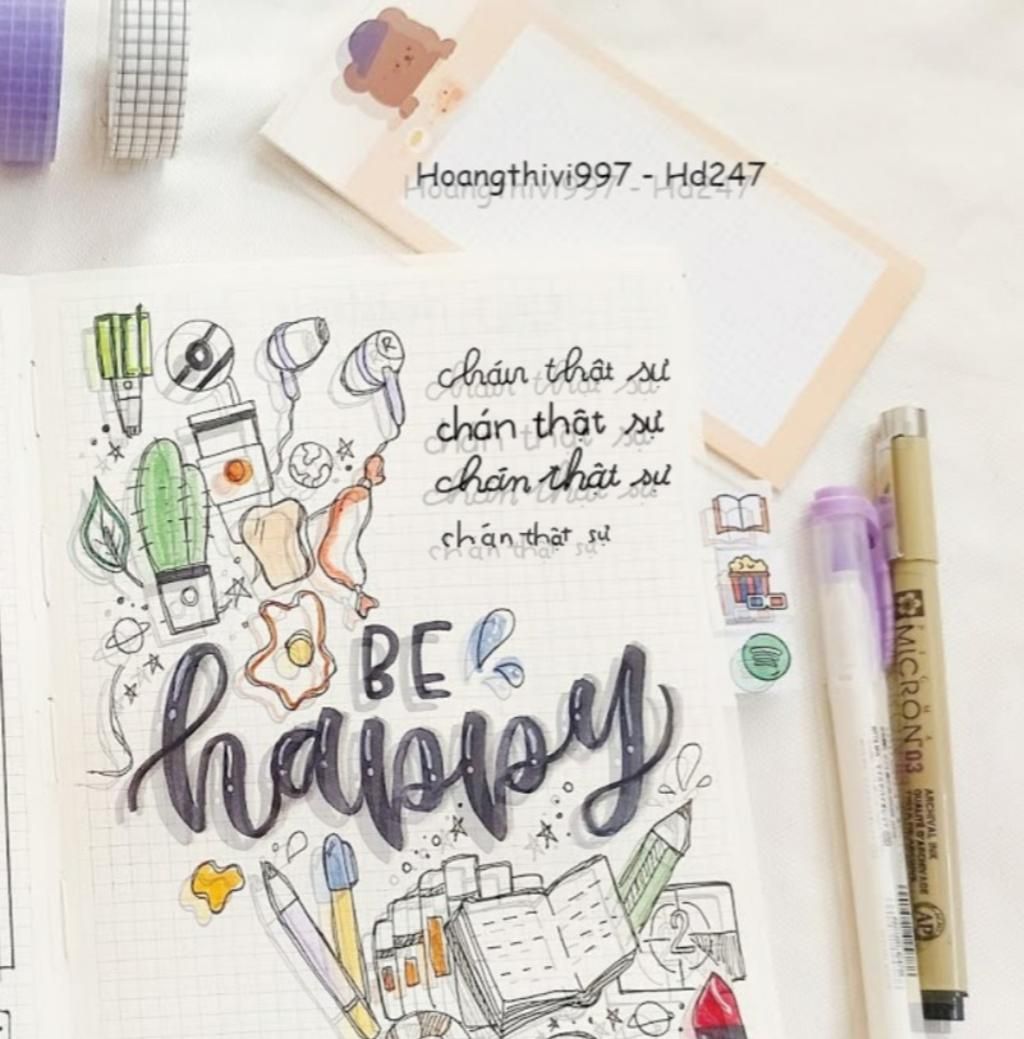 Hoangthivi997 - Hd247
chán thật sự
chán thật sự
chán thật sự
chán thật sự
BE
happy
R
2
MICRON 03
ARCHIVAL INK
QUALITÉ D'ARCHIVAGE
AP